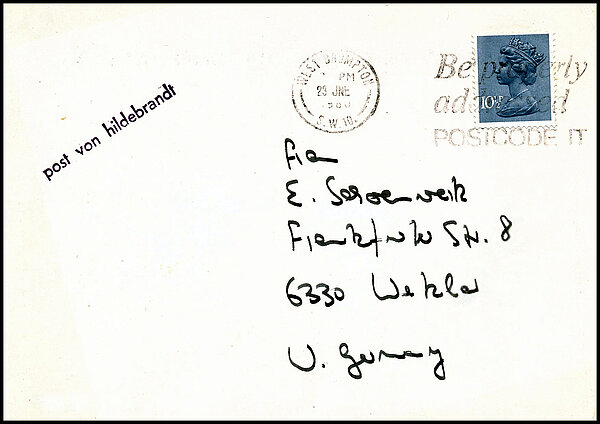 post von hildebrandt
WEST BROMPTON
PM
23 JNE
1980
S.W.10.
Be properly
addressed
POSTCODE IT
10½P
E. Schoenweik
Frankfurter Str. 8
6330 Wetzlar
W. Germany